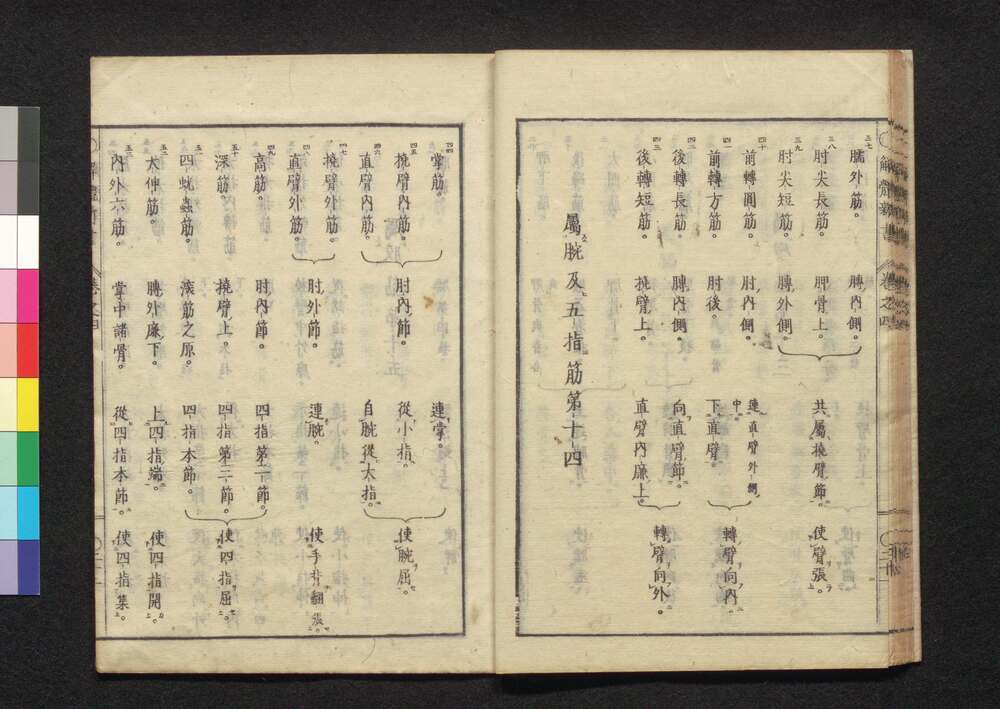 三七 臑外筋。 膊內側。
三八 肘尖長筋。 胛骨上。 共屬撓臂節。 使臂張。
三九 肘尖短筋。 膊外側。
四十 前轉圓筋。 肘內側。 連直臂外側中
四一 前轉方筋。 肘後 下直臂。 轉臂向內。
四二 後轉長筋。 膊內側。 向直臂節。
四三 後轉短筋。 撓臂上。 直臂內廉上。 轉臂向外。
屬腕及五指筋第十四
四四 掌筋。 連掌。
四五 撓臂內筋。 肘內節。 從小指。 使腕屈。
四六 直臂內筋。 自腕從大指。
四七 撓臂外筋。 肘外節。 連腕。 使手指翻張。
四八 直臂外筋。
四九 高筋。 肘內節。 四指第二節。
五十 深筋。 撓臂上。 四指第三節。 使四指屈。
四蚘蟲筋。 深筋之原。 四指本節。
大伸筋。 膊外廉下。 上四指端。 使四指開。
內外六筋。 掌中諸骨。 從四指本節。 使四指集。